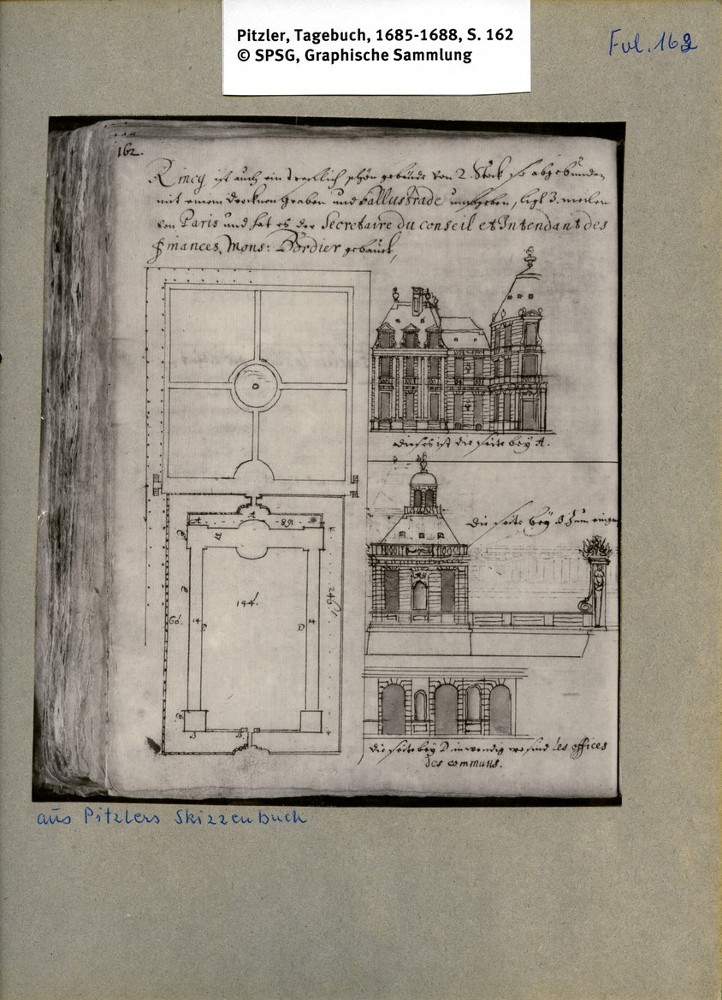 Pitzler, Tagebuch, 1685-1688, S. 162
© SPSG, Graphische Sammlung
Fol. 162
162.
Rincy ist auch ein trefflich schön gebäude von 2. Stock so abgebunden
mit einem drocknen graben und Ballustrade umbgeben, ligt 3. meilen
von Paris und hat es der Secretaire du conseil et Intendant des
finances, Mons: Bordier gebauet,
dieses ist die seite bey A.
die seite bey B zum
A
89
144.
246
60.
14
D
D
14
B
die seite bey D inwendig wo sind les offices
des communs.
aus Pitzlers Skizzenbuch